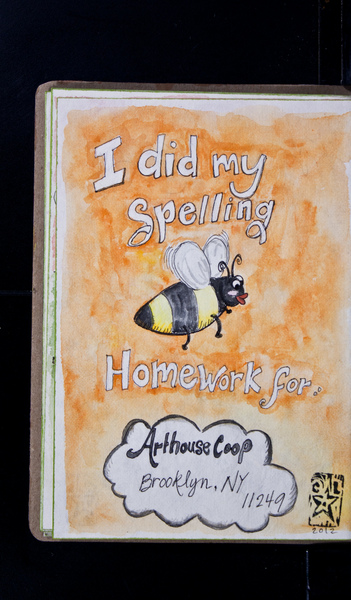 I did my
Spelling
Homework for..
Arthouse Coop
Brooklyn, NY
11249
2012